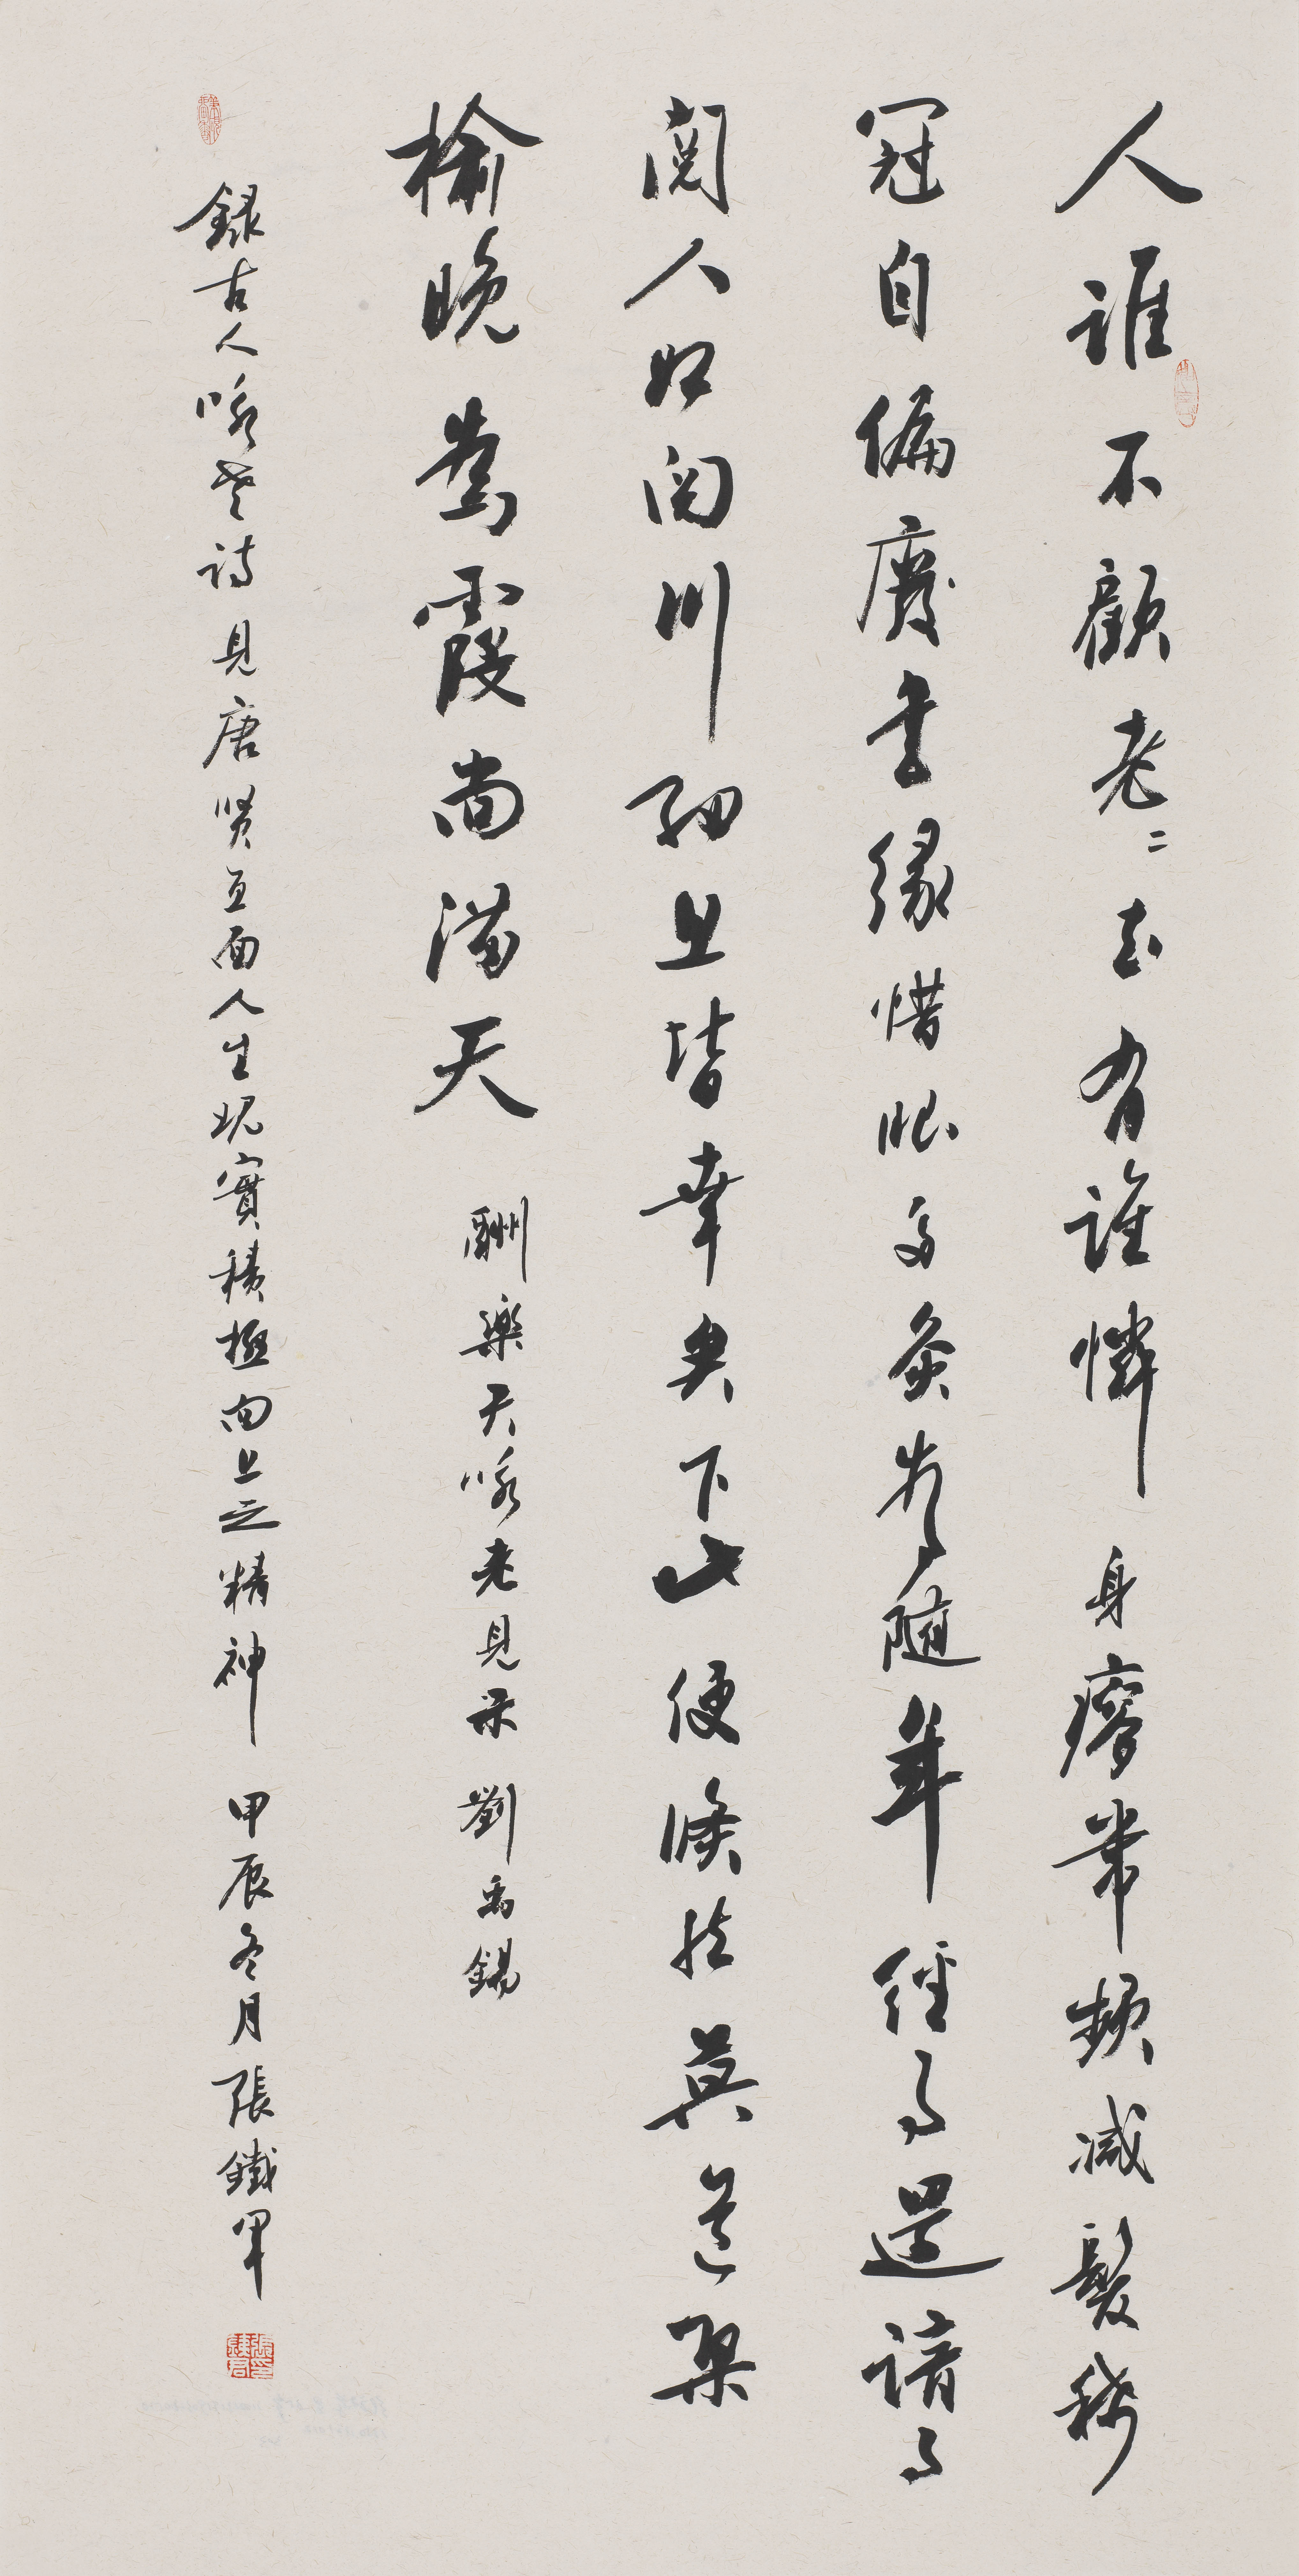 人誰不顧老〻去有誰憐身瘦帶頻減髮稀
冠自偏廢書緣惜眼多灸為隨年經事還諳事
閱人如閱川細思皆幸矣下此便翛然莫道桑
榆晚為霞尚滿天 酬樂天咏老見示 劉禹錫
録古人咏老詩見唐賢直面人生現實積極向上之精神 甲辰冬月張鐵軍